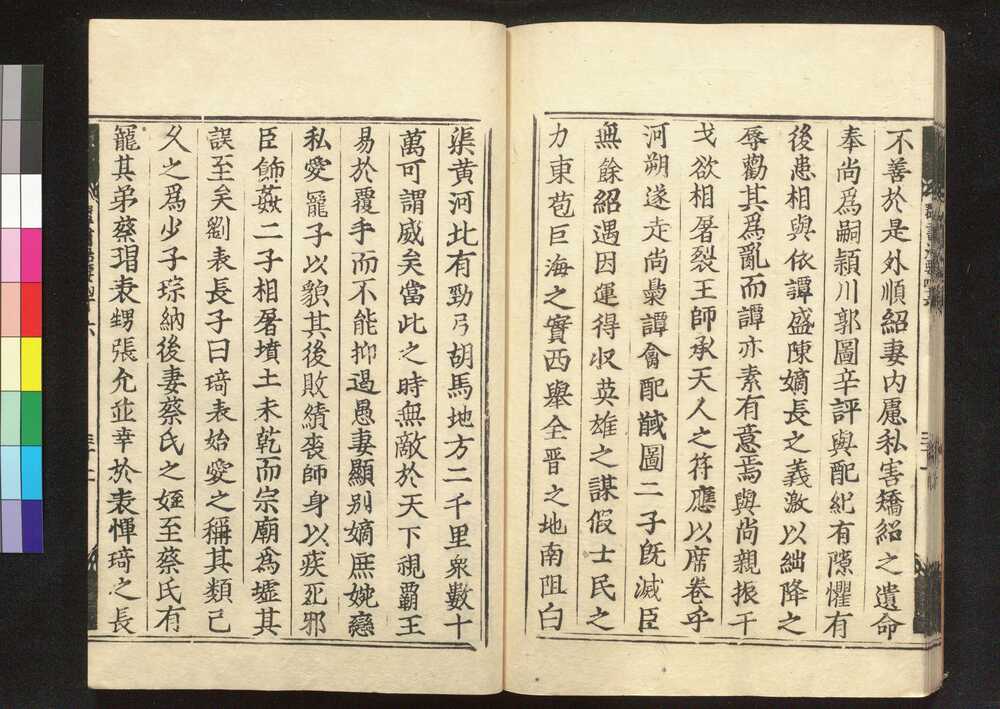 不善於是外順紹妻內慮私害矯紹之遺命
奉尚爲嗣頴川郭圖辛評與配紀有隙懼有
後患相與依譚盛陳嫡長之義激以絀降之
辱勸其爲亂而譚亦素有意焉與尚親振干
戈欲相屠裂王師承天人之符應以席卷乎
河朔遂走尚梟譚禽配馘圖二子旣滅臣
無餘紹遇因運得收英雄之謀假士民之
力東苞巨海之實西舉全晉之地南阻白
渠黃河北有勁弓胡馬地方二千里衆數十
萬可謂威矣當此之時無敵於天下視霸王
易於覆手而不能抑遏愚妻顯別嫡庶婉戀
私愛寵子以貌其後敗績喪師身以疾死邪
臣飾姦二子相屠墳土未乾而宗廟爲墟其
誤至矣劉表長子曰琦表始愛之稱其類己
久之爲少子琮納後妻蔡氏之姪至蔡氏有
寵其弟蔡瑁表甥張允並幸於表憚琦之長